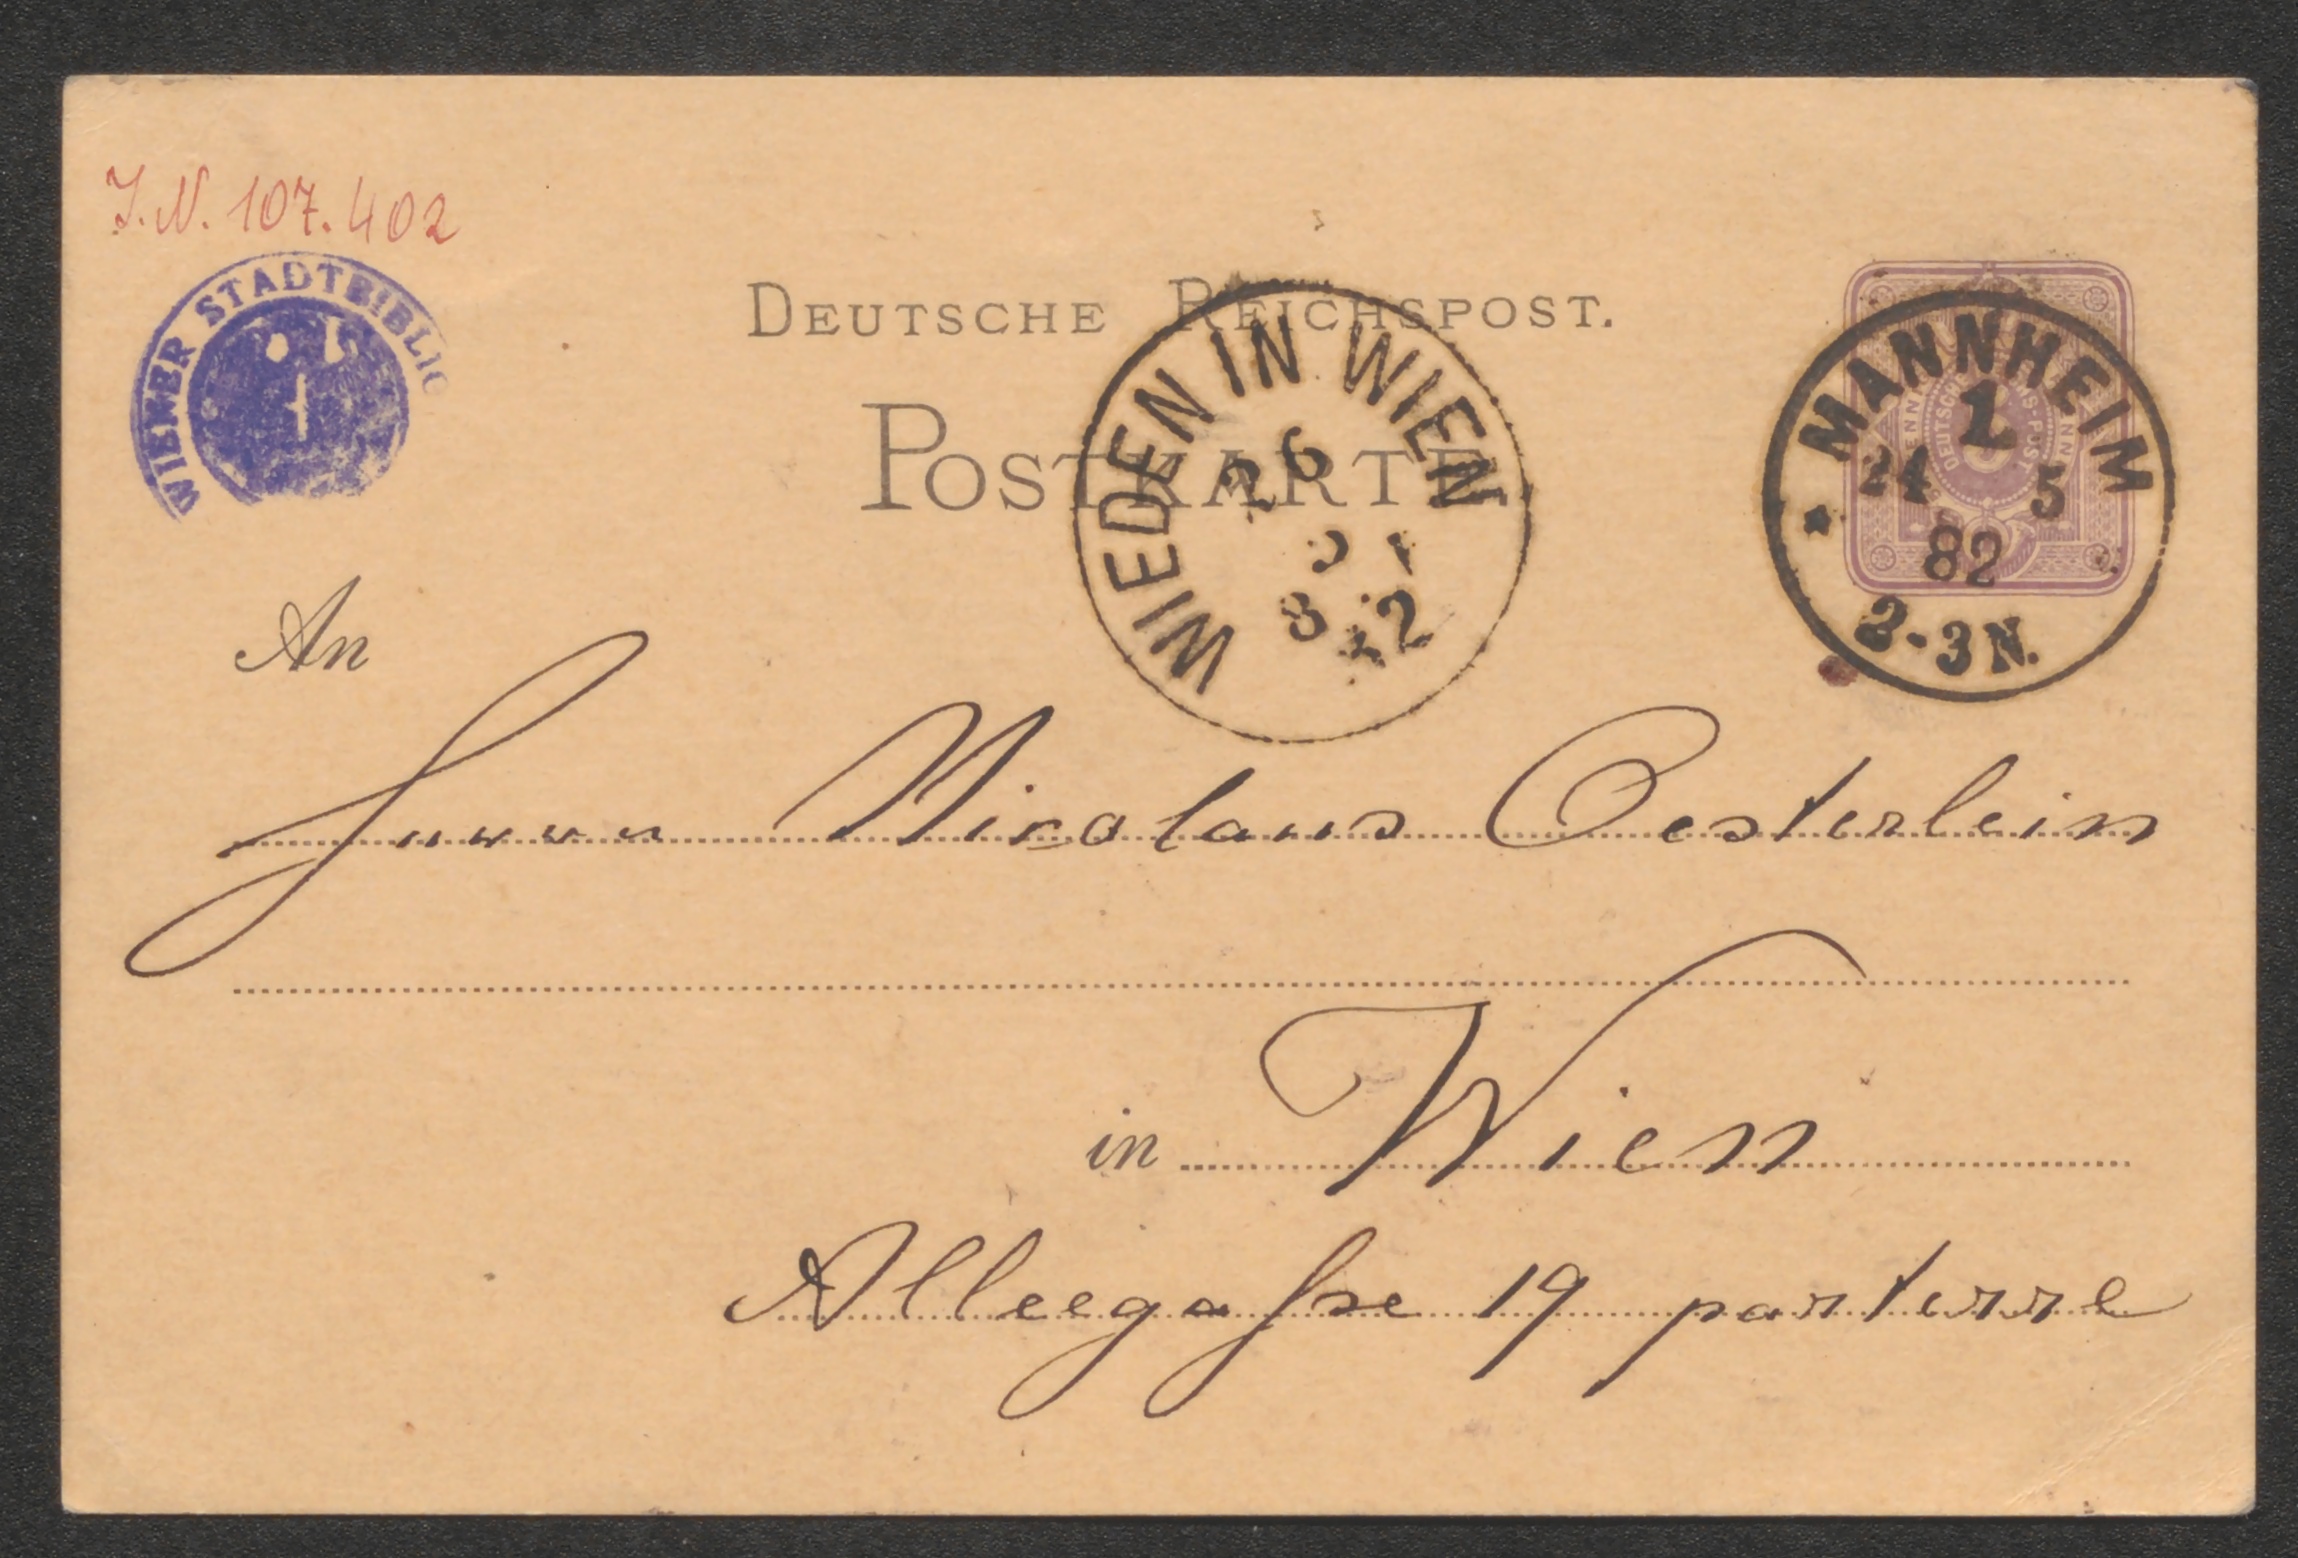 J.N. 107.402
WIENER STADTBIBLIO
DEUTSCHE REICHSPOST.
POSTKARTE
WIEDEN IN WIEN
26
82
MANNHEIM
1
24 5
82
2-3N.
An
Herrn Nicolaus Oesterlein
in Wien
Alleegaſse 19 parterre